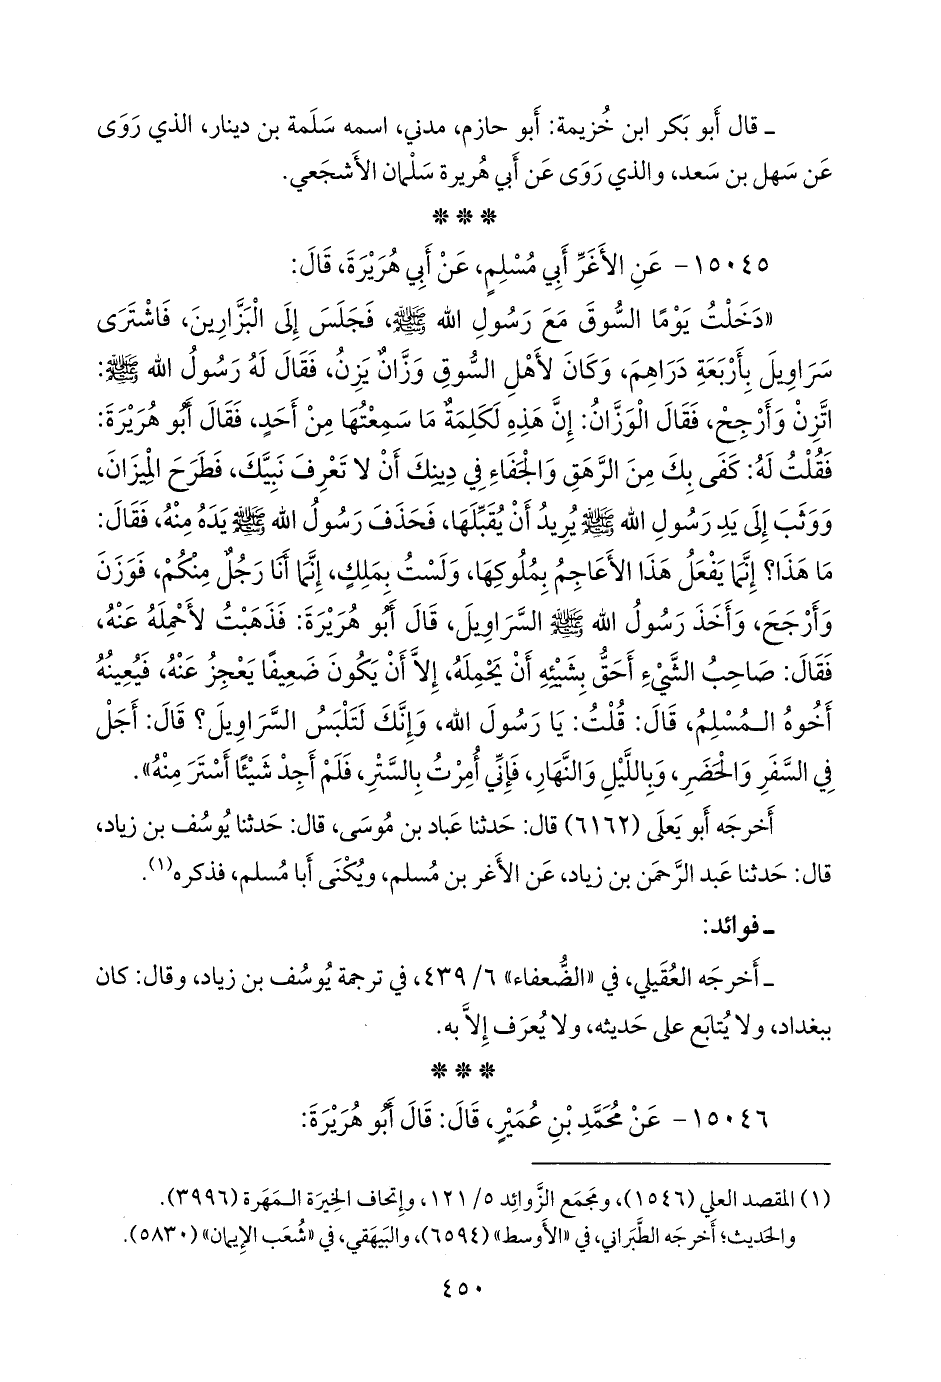 ـ قال أَبو بَكر ابن خُزيمة: أَبو حازم، مدني، اسمه سَلَمة بن دينار، الذي رَوَى
عَن سَهل بن سَعد، والذي رَوَى عَن أَبي هُريرة سَلْمان الأَشجَعي.
* * *
١٥٠٤٥- عَنِ الأَغَرِّ أَبِي مُسْلِمٍ، عَنْ أَبِي هُرَيْرَةَ، قَالَ:
«دَخَلْتُ يَوْمًا السُّوقَ مَعَ رَسُولِ الله ﷺ، فَجَلَسَ إِلَى الْبَزَّازِينَ، فَاشْتَرَى
سَرَاوِيلَ بِأَرْبَعَةِ دَرَاهِمَ، وَكَانَ لأَهْلِ السُّوقِ وَزَّانٌ يَزِنُ، فَقَالَ لَهُ رَسُولُ الله ﷺ:
اتَّزِنْ وَأَرْجِحْ، فَقَالَ الْوَزَّانُ: إِنَّ هَذِهِ لَكَلِمَةٌ مَا سَمِعْتُهَا مِنْ أَحَدٍ، فَقَالَ أَبُو هُرَيْرَةَ:
فَقُلْتُ لَهُ: كَفَى بِكَ مِنَ الرَّهَقِ وَالْجَفَاءِ فِي دِينِكَ أَنْ لا تَعْرِفَ نَبِيَّكَ، فَطَرَحَ الْمِيزَانَ،
وَوَثَبَ إِلَى يَدِ رَسُولِ الله ﷺ يُرِيدُ أَنْ يُقَبِّلَهَا، فَحَذَفَ رَسُولُ الله ﷺ يَدَهُ مِنْهُ، فَقَالَ:
مَا هَذَا؟ إِنَّمَا يَفْعَلُ هَذَا الأَعَاجِمُ بِمُلُوكِهَا، وَلَسْتُ بِمَلِكٍ، إِنَّمَا أَنَا رَجُلٌ مِنْكُمْ، فَوَزَنَ
وَأَرْجَحَ، وَأَخَذَ رَسُولُ الله ﷺ السَّرَاوِيلَ، قَالَ أَبُو هُرَيْرَةَ: فَذَهَبْتُ لأَحْمِلَهُ عَنْهُ،
فَقَالَ: صَاحِبُ الشَّيْءِ أَحَقُّ بِشَيْئِهِ أَنْ يَحْمِلَهُ، إِلاَّ أَنْ يَكُونَ ضَعِيفًا يَعْجِزُ عَنْهُ، فَيُعِينُهُ
أَخُوهُ الـمُسْلِمُ، قَالَ: قُلْتُ: يَا رَسُولَ الله، وَإِنَّكَ لَتَلْبَسُ السَّرَاوِيلَ؟ قَالَ: أَجَلْ
فِي السَّفَرِ وَالْحَضَرِ، وَبِاللَّيْلِ وَالنَّهَارِ، فَإِنِّي أُمِرْتُ بِالسَّتْرِ، فَلَمْ أَجِدْ شَيْئًا أَسْتَرَ مِنْهُ».
أَخرجَه أَبو يَعلَى (٦١٦٢) قال: حَدثنا عَباد بن مُوسَى، قال: حَدثنا يُوسُف بن زياد،
قال: حَدثنا عَبد الرَّحمَن بن زياد، عَن الأَغر بن مُسلم، ويُكْنَى أَبا مُسلم، فذكره(١).
ـ فوائد:
ـ أَخرجَه العُقَيلي، في «الضُّعفاء» ٦/ ٤٣٩، في ترجمة يُوسُف بن زياد، وقال: كان
ببغداد، ولا يُتابَع على حَديثه، ولا يُعرَف إِلاَّ به.
* * *
١٥٠٤٦- عَنْ مُحَمَّدِ بْنِ عُمَيْرٍ، قَالَ: قَالَ أَبُو هُرَيْرَةَ:
(١) المقصد العلي (١٥٤٦)، ومَجمَع الزَّوائِد ٥/ ١٢١، وإِتحاف الخِيرَة الـمَهَرة (٣٩٩٦).
والحَديث؛ أَخرجَه الطَّبَراني، في «الأَوسط» (٦٥٩٤)، والبَيهَقي، في «شُعَب الإِيمان» (٥٨٣٠).
٤٥٠